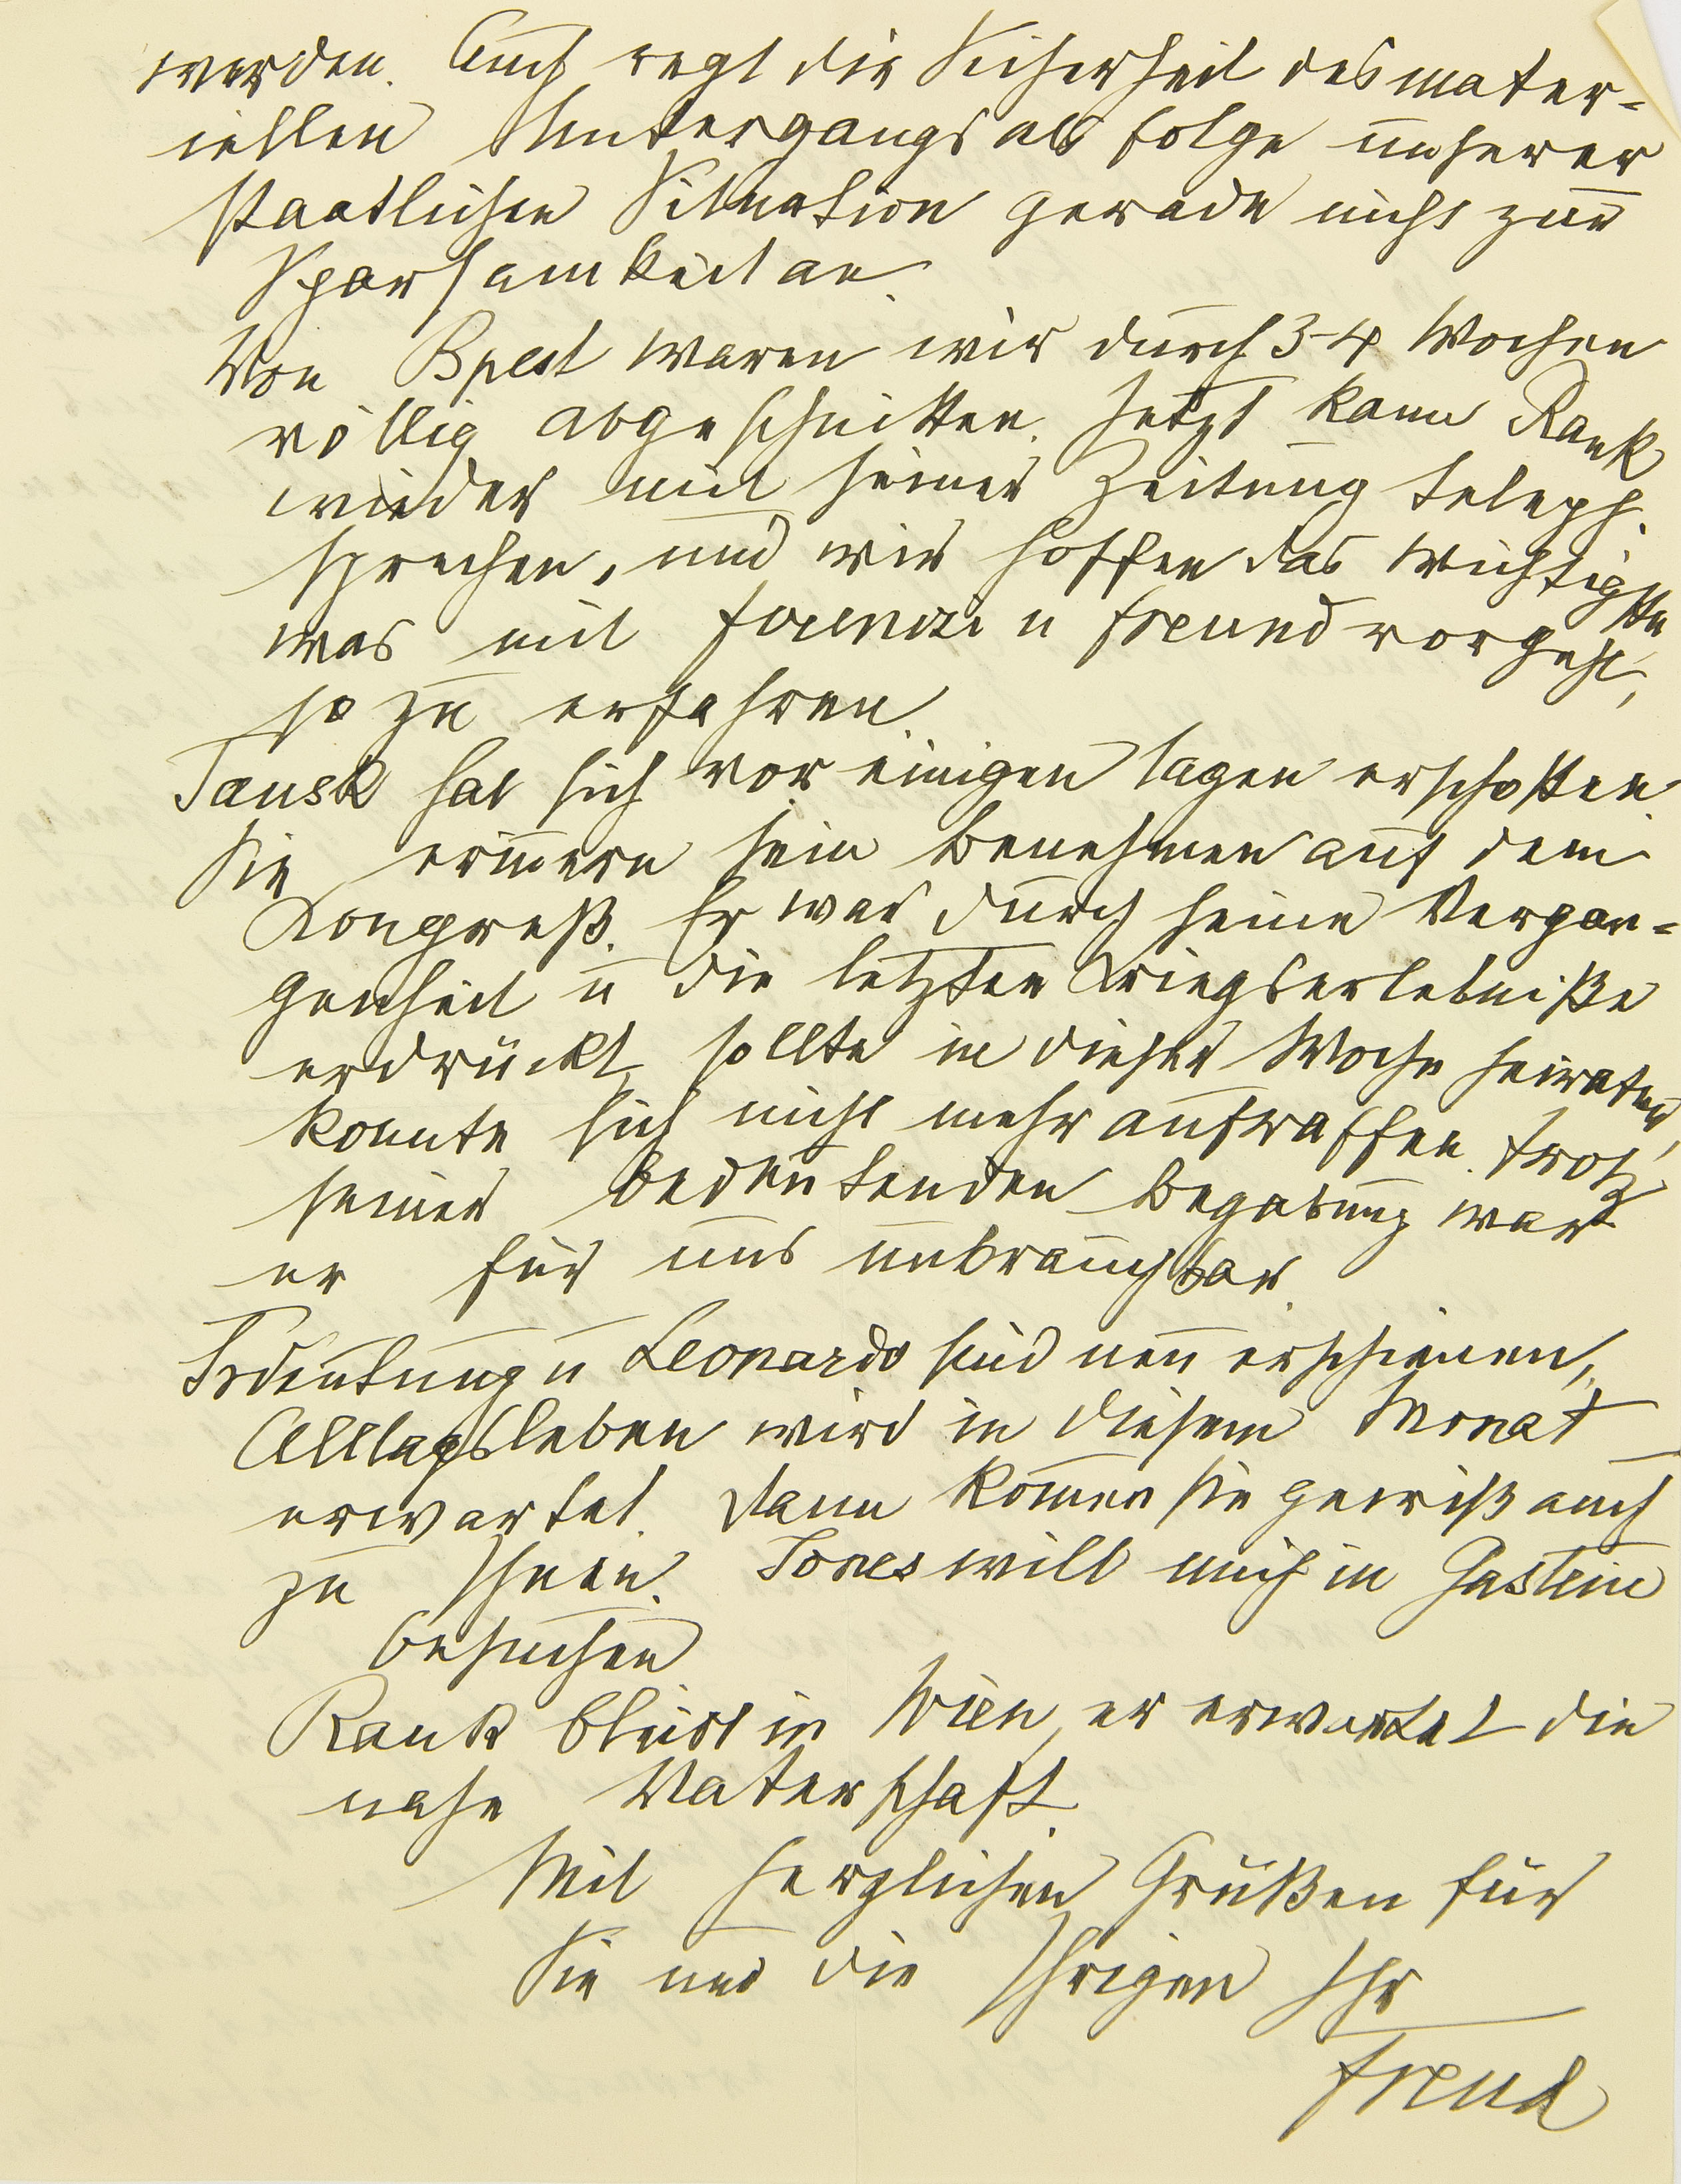 werden. Auch regt die Sicherheit des mater-
iellen Untergangs als Folge unserer
staatlichen Situation gerade nicht zur
Sparsamkeit an.
Von Bpest waren wir durch 3-4 Wochen
völlig abgeschnitten. Jetzt kann Rank
wieder mit seiner Zeitung teleph.
sprechen, und wir hoffen das Wichtigste
was mit Ferenczi u Freund vorgeht,
so zu erfahren.
Tausk hat sich vor einigen Tagen erschossen.
Sie erinnern sein Benehmen auf dem
Kongreß. Er war durch seine Vergan-
genheit u die letzten Kriegserlebniße
erdrückt, sollte in dieser Woche heiraten,
konnte sich nicht mehr aufraffen. Trotz
seiner bedeutenden Begabung war
er für uns unbrauchbar.
Trdeutung u Leonardo sind neu erschienen,
Alltagsleben wird in diesem Monat
erwartet. Dann kom̅en sie gewiß auch
zu Ihnen. Jones will mich in Gastein
besuchen
Rank bleibt in Wien, er erwartet die
nahe Vaterschaft.
Mit herzlichen Grüßen für
Sie und die Ihrigen Ihr
Freud